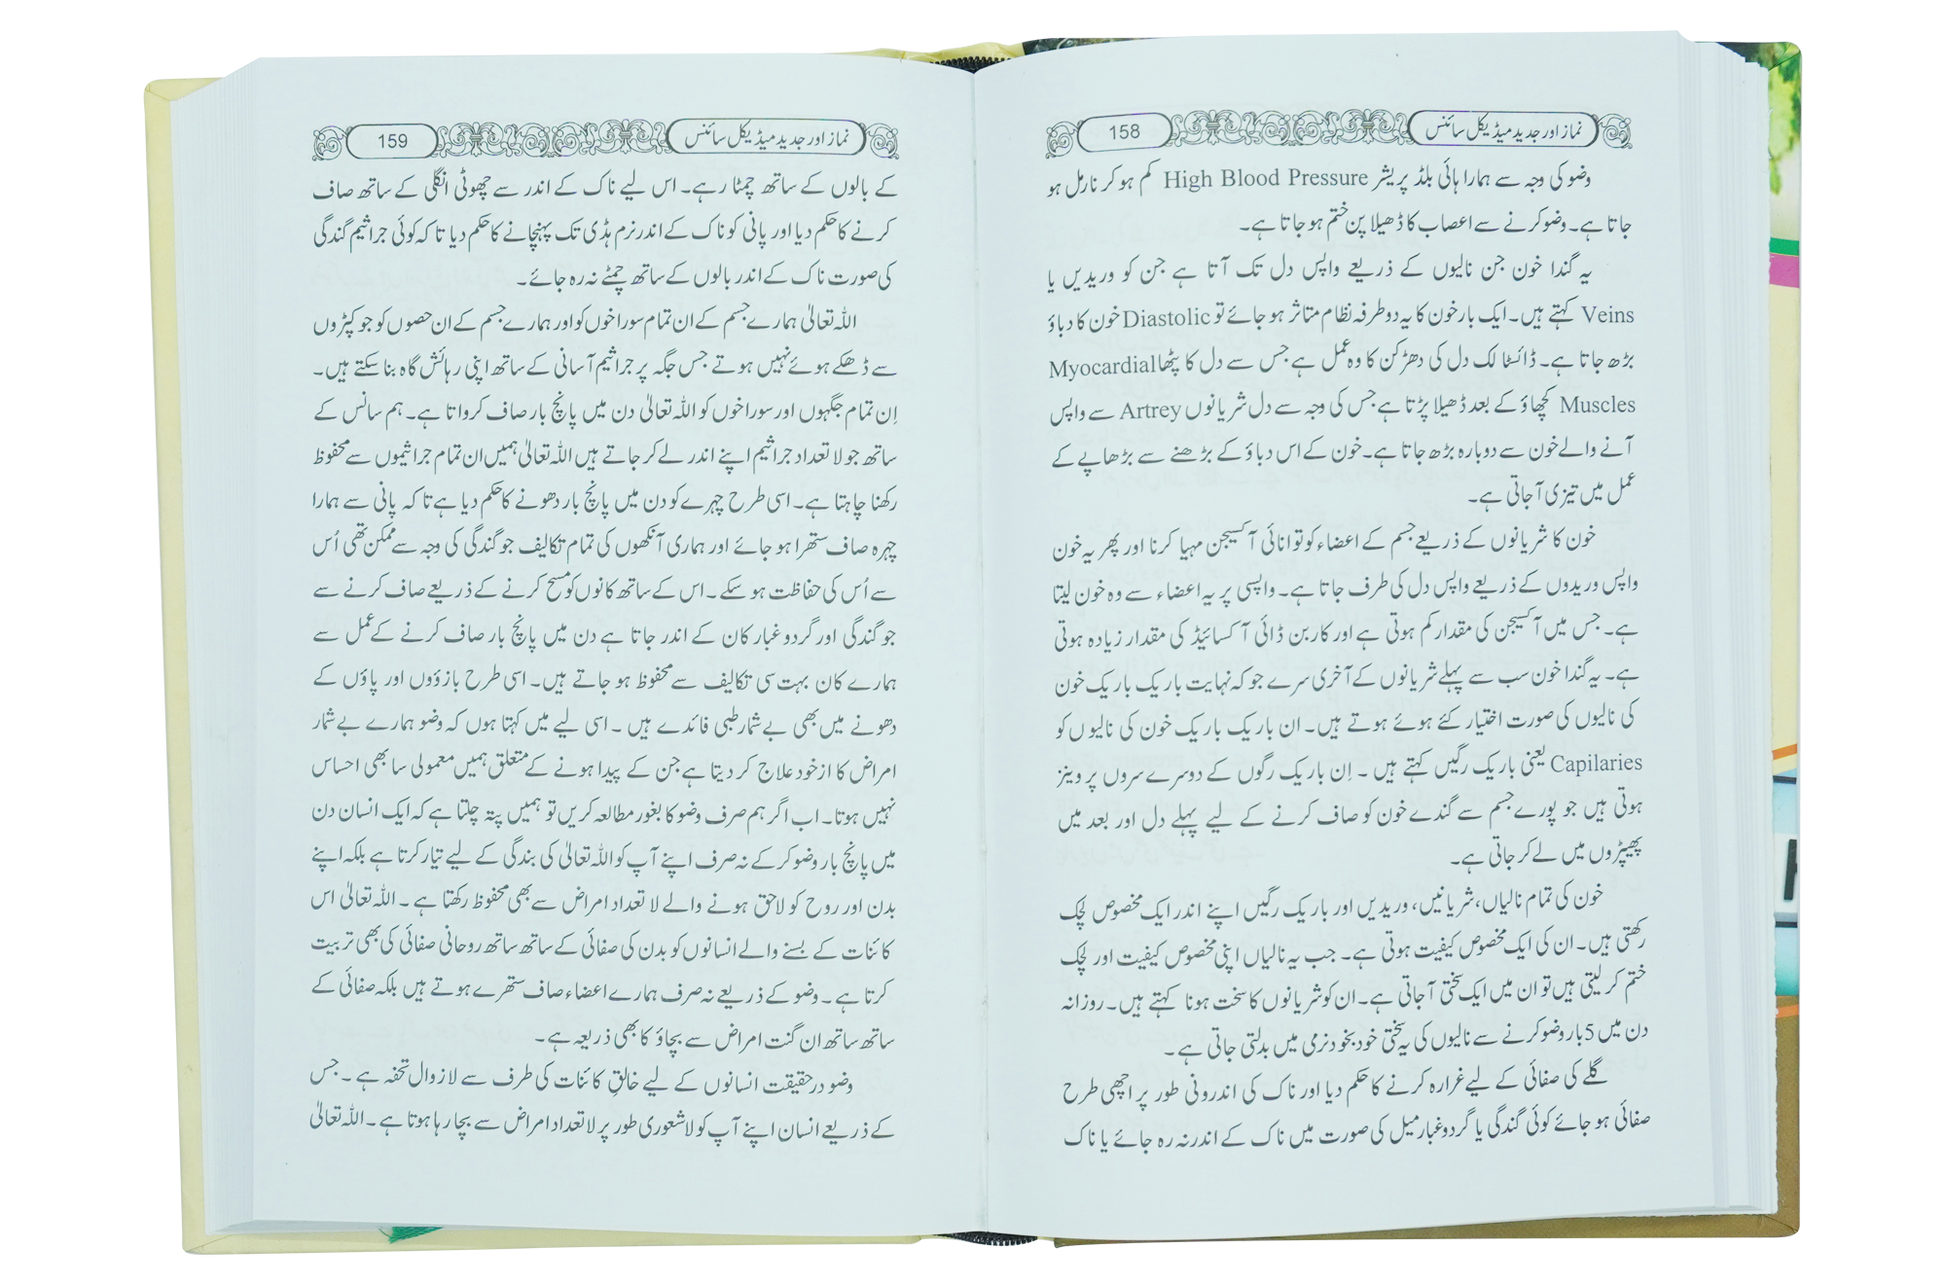 نماز اور جدید میڈیکل سائنس 158
وضو کی وجہ سے ہمارا ہائی بلڈ پریشر High Blood Pressure کم ہو کر نارمل ہو
جاتا ہے۔ وضو کرنے سے اعصاب کا ڈھیلا پن ختم ہو جاتا ہے۔
یہ گندا خون جن نالیوں کے ذریعے واپس دل تک آتا ہے جن کو وریدیں یا
Veins کہتے ہیں۔ ایک بار خون کا یہ دو طرفہ نظام متاثر ہو جائے تو Diastolic خون کا دباؤ
بڑھ جاتا ہے۔ ڈائسٹا لک دل کی دھڑکن کا وہ عمل ہے جس سے دل کا پٹھا Myocardial
Muscles کھچاؤ کے بعد ڈھیلا پڑتا ہے جس کی وجہ سے دل شریانوں Artrey سے واپس
آنے والے خون سے دوبارہ بڑھ جاتا ہے۔ خون کے اس دباؤ کے بڑھنے سے بڑھاپے کے
عمل میں تیزی آ جاتی ہے۔
خون کا شریانوں کے ذریعے جسم کے اعضاء کو توانائی آکسیجن مہیا کرنا اور پھر یہ خون
واپس وریدوں کے ذریعے واپس دل کی طرف جاتا ہے۔ واپسی پر یہ اعضاء سے وہ خون لیتا
ہے۔ جس میں آکسیجن کی مقدار کم ہوتی ہے اور کاربن ڈائی آکسائیڈ کی مقدار زیادہ ہوتی
ہے۔ یہ گندا خون سب سے پہلے شریانوں کے آخری سرے جو کہ نہایت باریک باریک خون
کی نالیوں کی صورت اختیار کئے ہوئے ہوتے ہیں۔ ان باریک باریک خون کی نالیوں کو
Capilaries یعنی باریک رگیں کہتے ہیں ۔ اِن باریک رگوں کے دوسرے سروں پر وینز
ہوتی ہیں جو پورے جسم سے گندے خون کو صاف کرنے کے لیے پہلے دل اور بعد میں
پھیپڑوں میں لے کر جاتی ہے۔
خون کی تمام نالیاں، شریانیں، وریدیں اور باریک رگیں اپنے اندر ایک مخصوص لچک
رکھتی ہیں۔ ان کی ایک مخصوص کیفیت ہوتی ہے۔ جب یہ نالیاں اپنی مخصوص کیفیت اور لچک
ختم کر لیتی ہیں تو ان میں ایک سختی آ جاتی ہے۔ ان کو شریانوں کا سخت ہونا کہتے ہیں۔ روزانہ
دن میں 5 بار وضو کرنے سے نالیوں کی یہ سختی خود بخود نرمی میں بدلتی جاتی ہے ۔
گلے کی صفائی کے لیے غرارہ کرنے کا حکم دیا اور ناک کی اندرونی طور پر اچھی طرح
صفائی ہو جائے کوئی گندگی یا گرد و غبار میل کی صورت میں ناک کے اندر نہ رہ جائے یا ناک
نماز اور جدید میڈیکل سائنس 159
کے بالوں کے ساتھ چمٹا رہے۔ اس لیے ناک کے اندر سے چھوٹی انگلی کے ساتھ صاف
کرنے کا حکم دیا اور پانی کو ناک کے اندر نرم ہڈی تک پہنچانے کا حکم دیا تا کہ کوئی جراثیم گندگی
کی صورت ناک کے اندر بالوں کے ساتھ چمٹے نہ رہ جائے۔
اللہ تعالیٰ ہمارے جسم کے ان تمام سوراخوں کو اور ہمارے جسم کے ان حصوں کو جو کپڑوں
سے ڈھکے ہوئے نہیں ہوتے جس جگہ پر جراثیم آسانی کے ساتھ اپنی رہائش گاہ بنا سکتے ہیں۔
اِن تمام جگہوں اور سوراخوں کو اللہ تعالیٰ دن میں پانچ بار صاف کرواتا ہے۔ ہم سانس کے
ساتھ جو لا تعداد جراثیم اپنے اندر لے کر جاتے ہیں اللہ تعالیٰ ہمیں ان تمام جراثیموں سے محفوظ
رکھنا چاہتا ہے۔ اسی طرح چہرے کو دن میں پانچ بار دھونے کا حکم دیا ہے تا کہ پانی سے ہمارا
چہرہ صاف ستھرا ہو جائے اور ہماری آنکھوں کی تمام تکالیف جو گندگی کی وجہ سے ممکن تھی اُس
سے اُس کی حفاظت ہو سکے۔ اس کے ساتھ کانوں کو مسح کرنے کے ذریعے صاف کرنے سے
جو گندگی اور گرد و غبار کان کے اندر جاتا ہے دن میں پانچ بار صاف کرنے کے عمل سے
ہمارے کان بہت سی تکالیف سے محفوظ ہو جاتے ہیں۔ اسی طرح بازؤوں اور پاؤں کے
دھونے میں بھی بے شمار طبی فائدے ہیں ۔ اسی لیے میں کہتا ہوں کہ وضو ہمارے بے شمار
امراض کا از خود علاج کر دیتا ہے جن کے پیدا ہونے کے متعلق ہمیں معمولی سا بھی احساس
نہیں ہوتا۔ اب اگر ہم صرف وضو کا بغور مطالعہ کریں تو ہمیں پتہ چلتا ہے کہ ایک انسان دن
میں پانچ بار وضو کر کے نہ صرف اپنے آپ کو اللہ تعالیٰ کی بندگی کے لیے تیار کرتا ہے بلکہ اپنے
بدن اور روح کو لاحق ہونے والے لا تعداد امراض سے بھی محفوظ رکھتا ہے ۔ اللہ تعالیٰ اس
کائنات کے بسنے والے انسانوں کو بدن کی صفائی کے ساتھ ساتھ روحانی صفائی کی بھی تربیت
کرتا ہے ۔ وضو کے ذریعے نہ صرف ہمارے اعضاء صاف ستھرے ہوتے ہیں بلکہ صفائی کے
ساتھ ساتھ ان گنت امراض سے بچاؤ کا بھی ذریعہ ہے ۔
وضو در حقیقت انسانوں کے لیے خالقِ کائنات کی طرف سے لازوال تحفہ ہے ۔ جس
کے ذریعے انسان اپنے آپ کو لاشعوری طور پر لا تعداد امراض سے بچا رہا ہوتا ہے ۔ اللہ تعالیٰ